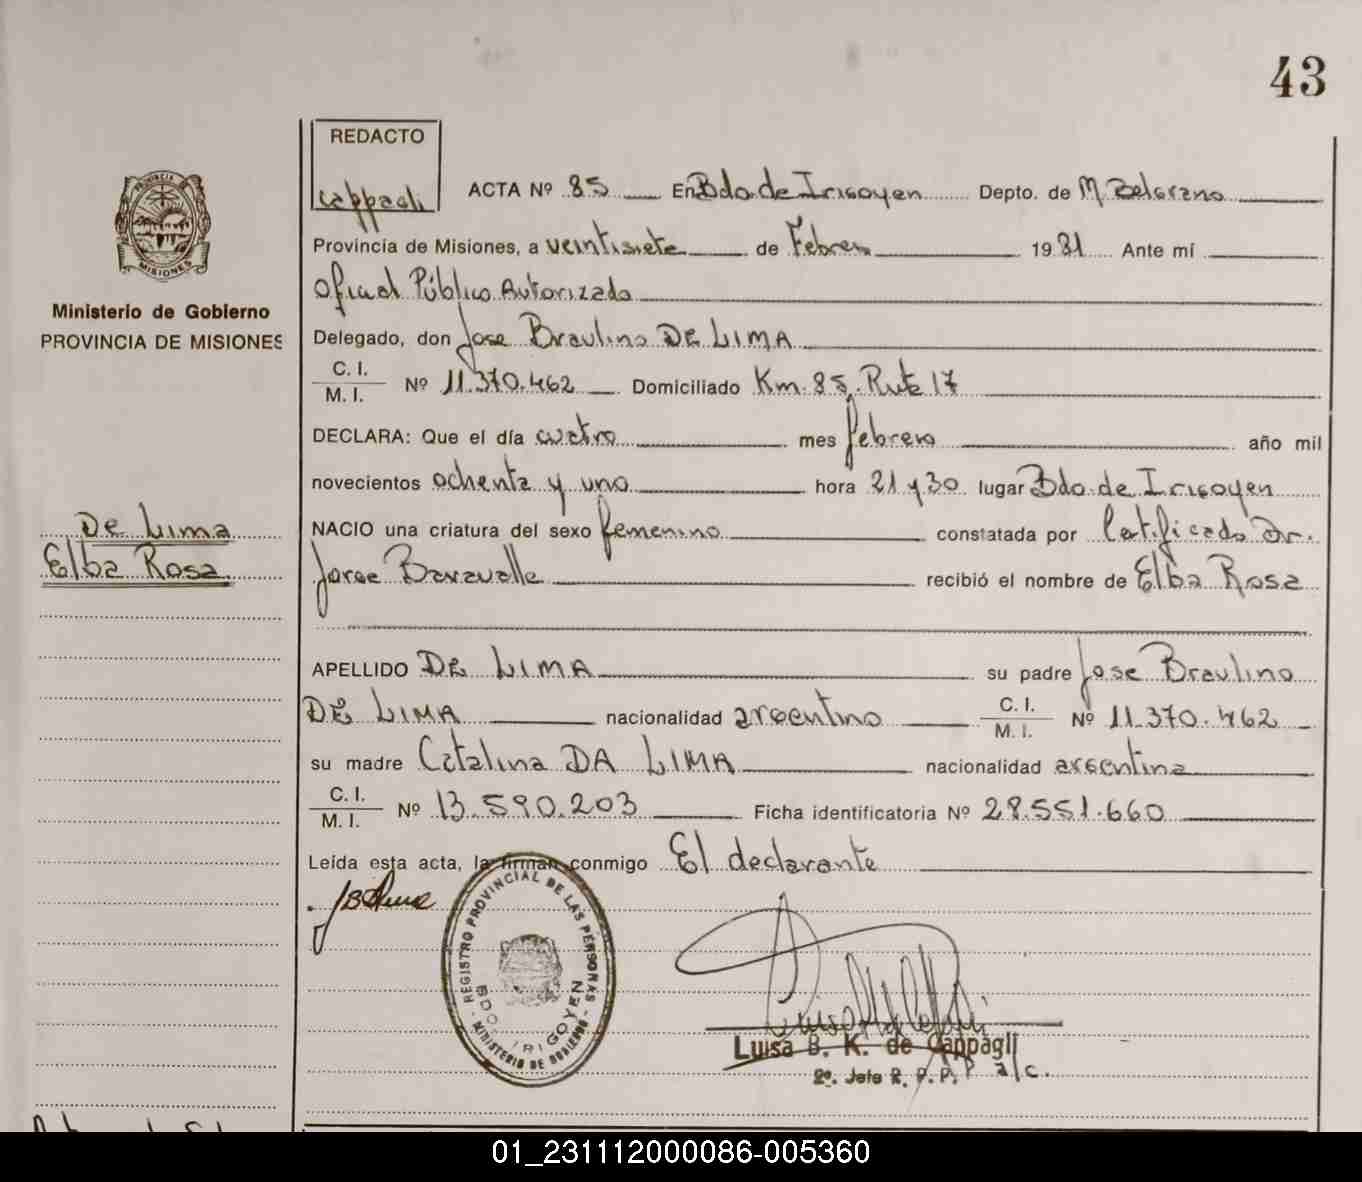 43
REDACTO
Cappagli
ACTA Nº 85 En Bdo. de Irigoyen Depto. de M. Belgrano
Provincia de Misiones, a veintisiete de Febrero 1981 Ante mí
Oficial Público Autorizado
Delegado, don Jose Braulino DE LIMA
C. I.
M. I. Nº 11.370.462 Domiciliado Km. 85. Ruta 17
DECLARA: Que el día cuatro mes febrero año mil
novecientos ochenta y uno hora 21 y 30 lugar Bdo. de Irigoyen
NACIO una criatura del sexo femenino constatada por Certificado Dr.
Jorge Baravalle recibió el nombre de Elba Rosa
APELLIDO DE LIMA su padre Jose Braulino
DE LIMA nacionalidad argentino C. I.
M. I. Nº 11.370.462
su madre Catalina DA LIMA nacionalidad argentina
C. I.
M. I. Nº 13.590.203 Ficha identificatoria Nº 28.551.660
Leída esta acta, la firman conmigo El declarante
PROVINCIA
MISIONES
Ministerio de Gobierno
PROVINCIA DE MISIONES
De Lima
Elba Rosa
REGISTRO PROVINCIAL DE LAS PERSONAS
BDO. IRIGOYEN
MINISTERIO DE GOBIERNO
Luisa B. K. de Cappagli
2º. Jefe R. P. P. a/c.
01_231112000086-005360